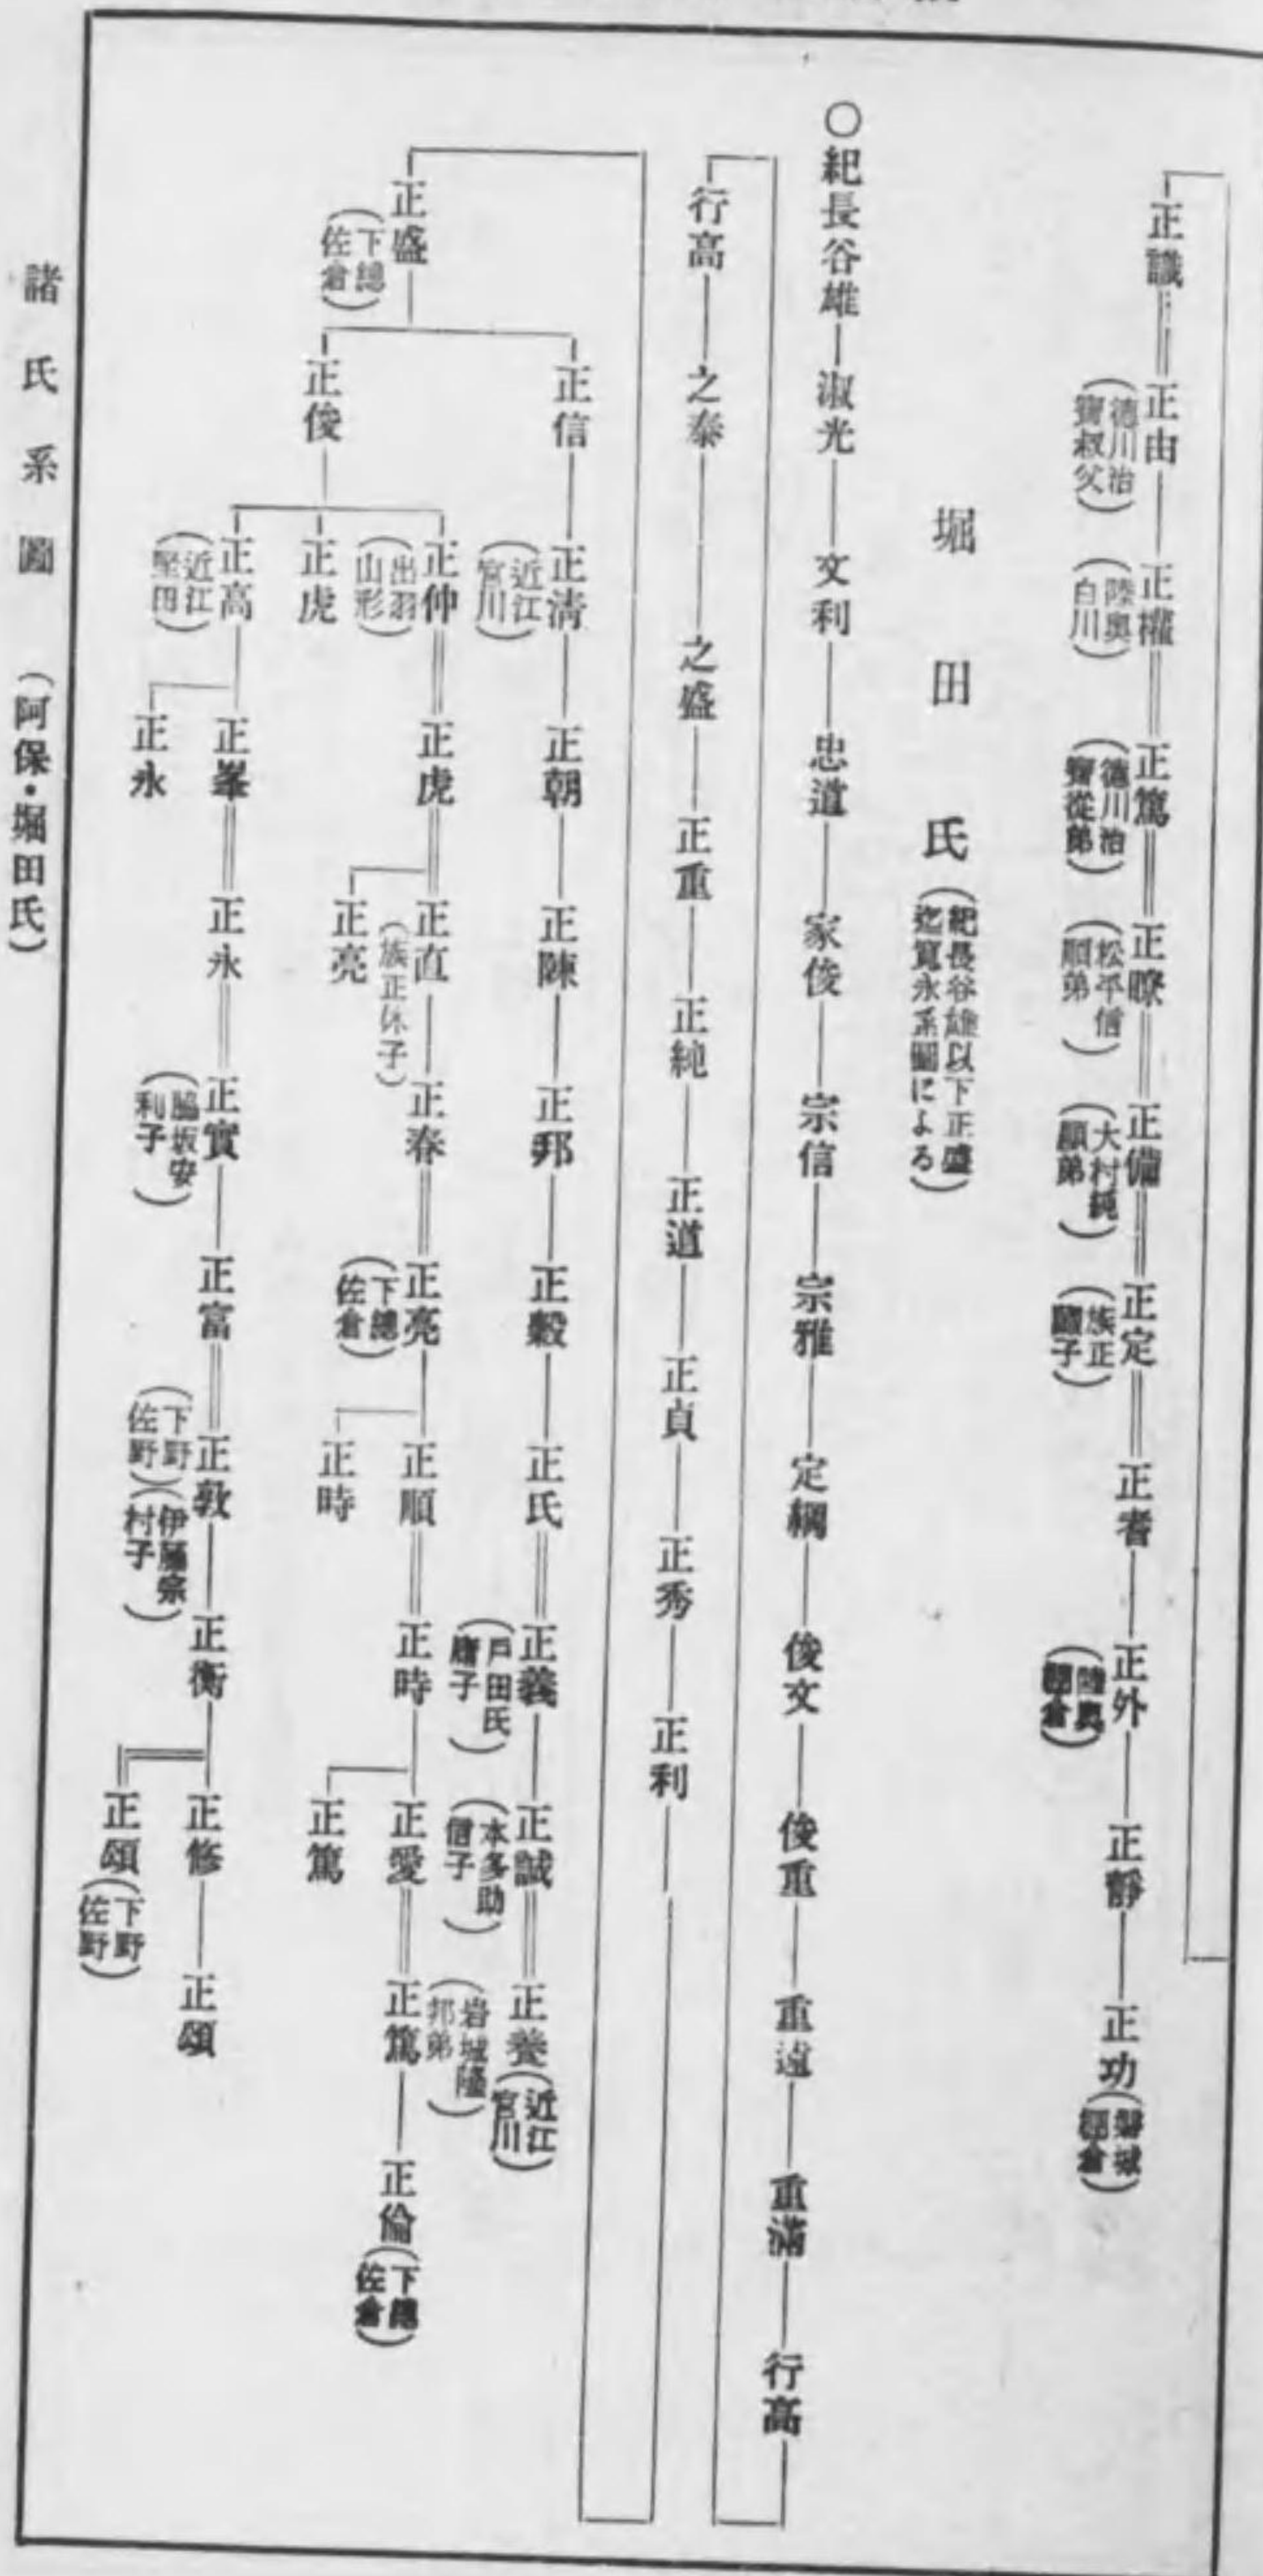 正識
正由
(德川治
寶叔父)
正權
(陸奥
白川)
正篤
(德川治
寶從弟)
正瞭
(松平信
順弟)
正備
(大村純
顯弟)
正定
(族正
國子)
正者
正外
(陸奥
棚倉)
正靜
正功
(磐城
棚倉)
堀田氏
(紀長谷雄以下正盛
迄寬永系圖による)
〇紀長谷雄
淑光
文利
忠道
家俊
宗信
宗雅
定綱
俊文
俊重
重遠
重滿
行高
行高
之泰
之盛
正重
正純
正道
正貞
正秀
正利
正盛
(下總
佐倉)
正信
正淸
(近江
宮川)
正朝
正陳
正邦
正穀
正氏
正義
(戶田氏
庸子)
正誠
(本多助
信子)
正養
(近江
宮川)
(岩城隆
邦弟)
正俊
正仲
(出羽
山形)
正虎
正直
(族正休子)
正春
正亮
(下總
佐倉)
正順
正時
正愛
正篤
正倫
(下總
佐倉)
正亮
正時
正篤
正虎
正高
(近江
堅田)
正峯
正永
正實
(脇坂安
利子)
正富
正敦
(下野
佐野)
(伊藤宗
村子)
正衡
正修
正頌
正永
正頌
(下野
佐野)
諸氏系圖
(阿保・堀田氏)